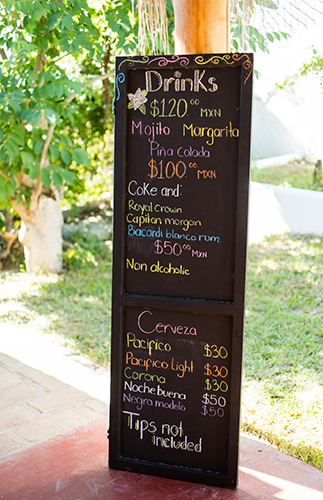 Drinks
$120.00 MXN
Mojito Margarita
Piña colada
$100.00 MXN
Coke and:
Royal crown
Capitan morgan
Bacardi blanco rum.
$50.00 MXN
Non alcoholic
Cerveza
Pacifico $30
Pacifico Light $30
Corona $30
Noche buena $50
Negra modelo $50
Tips not
included